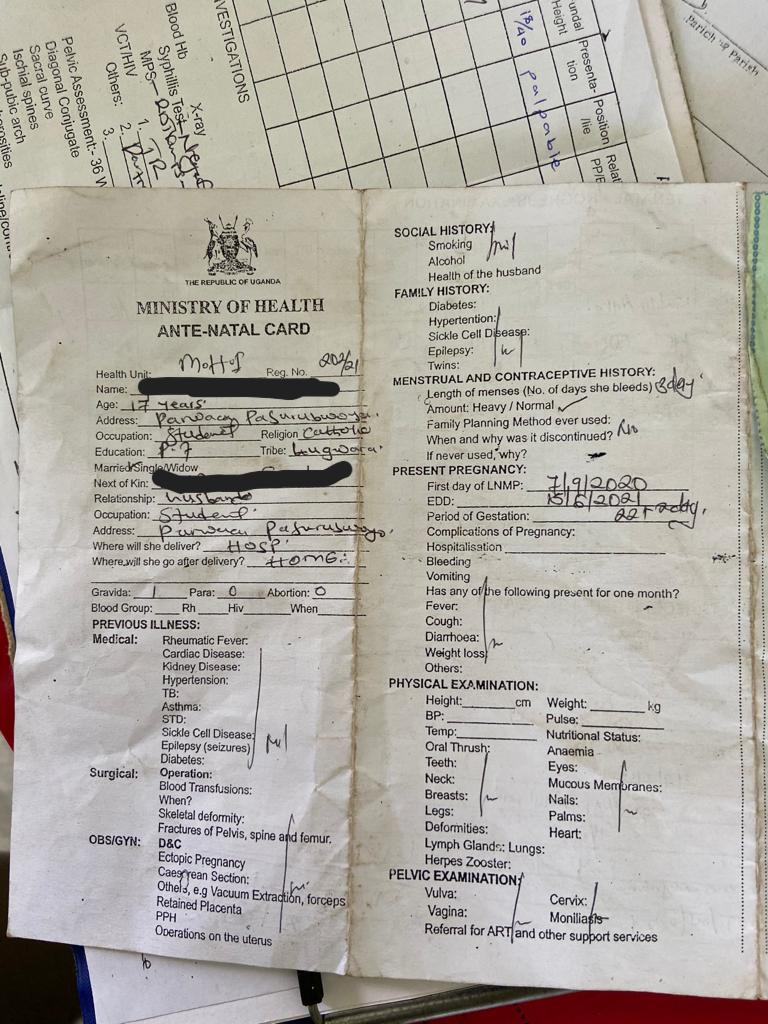 NVESTIGATIONS
Blood Hb
Syphillis Test
MPS
VCT/HIV 1.
Others: 2.
3.
X-ray
Pelvic Assessment:- 36 W
Diagonal Conjugate
Sacral curve
Ischial spines
Sub-pubic arch
Fundal Height
Presenta-tion
Position /lie
18/40 palpable
Parish
THE REPUBLIC OF UGANDA
MINISTRY OF HEALTH
ANTE-NATAL CARD
Health Unit: Reg. No. 202/21
Name:
Age: 17 years
Address:
Occupation: Student Religion Catholic
Education: P.7 Tribe: Lugwara
Married/Single/Widow
Next of Kin:
Relationship: husband
Occupation: Student
Address:
Where will she deliver? HOSP.
Where will she go after delivery? HOME.
Gravida: 1 Para: 0 Abortion: 0
Blood Group: Rh Hiv When
PREVIOUS ILLNESS:
Medical: Rheumatic Fever:
Cardiac Disease:
Kidney Disease:
Hypertension:
TB:
Asthma:
STD:
Sickle Cell Disease:
Epilepsy (seizures) Nil
Diabetes:
Surgical: Operation:
Blood Transfusions:
When?
Skeletal deformity:
Fractures of Pelvis, spine and femur.
OBS/GYN: D&C
Ectopic Pregnancy
Caesrorean Section:
Others, e.g Vacuum Extraction, forceps
Retained Placenta
PPH
Operations on the uterus
SOCIAL HISTORY:
Smoking Nil
Alcohol
Health of the husband
FAMILY HISTORY:
Diabetes:
Hypertention:
Sickle Cell Disease:
Epilepsy:
Twins:
MENSTRUAL AND CONTRACEPTIVE HISTORY:
Length of menses (No. of days she bleeds) 3day
Amount: Heavy / Normal ✓
Family Planning Method ever used: No
When and why was it discontinued?
If never used, why?
PRESENT PREGNANCY:
First day of LNMP: 7/9/2020
EDD: 15/6/2021
Period of Gestation: 22+2day
Complications of Pregnancy:
Hospitalisation
Bleeding
Vomiting
Has any of the following present for one month?
Fever:
Cough:
Diarrhoea:
Weight loss
Others:
PHYSICAL EXAMINATION:
Height: cm Weight: kg
BP: Pulse:
Temp: Nutritional Status:
Oral Thrush: Anaemia
Teeth: Eyes:
Neck: Mucous Membranes:
Breasts: Nails:
Legs: Palms:
Deformities: Heart:
Lymph Glands: Lungs:
Herpes Zooster:
PELVIC EXAMINATION:
Vulva: Cervix:
Vagina: Moniliasis
Referral for ART and other support services